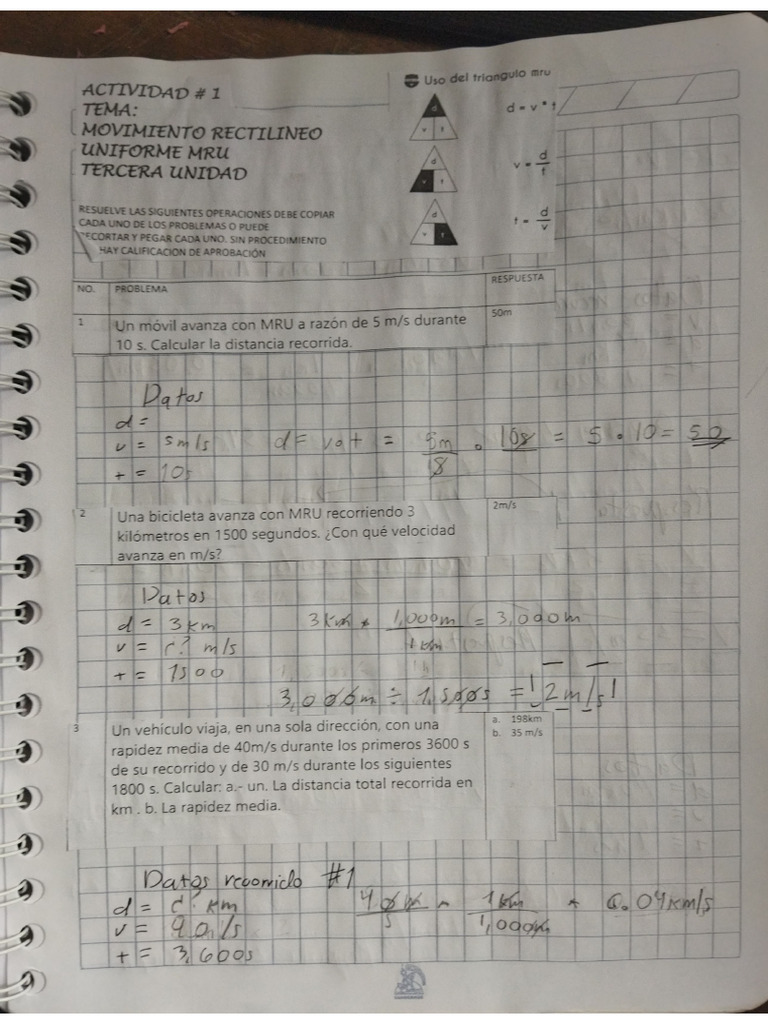 ACTIVIDAD # 1
TEMA:
MOVIMIENTO RECTILINEO
UNIFORME MRU
TERCERA UNIDAD
RESUELVE LAS SIGUIENTES OPERACIONES DEBE COPIAR
CADA UNO DE LOS PROBLEMAS O PUEDE
RECORTAR Y PEGAR CADA UNO. SIN PROCEDIMIENTO
HAY CALIFICACION DE APROBACIÓN
Uso del triangulo mru
d
v t
d = v * t
d
v t
v = d/t
d
v t
t = d/v
NO. PROBLEMA RESPUESTA
1 Un móvil avanza con MRU a razón de 5 m/s durante 50m
10 s. Calcular la distancia recorrida.
Datos
d =
v = 5m/s d = v • t = 5m/s • 10s = 5 • 10 = 50
t = 10s
2 Una bicicleta avanza con MRU recorriendo 3 2m/s
kilómetros en 1500 segundos. ¿Con qué velocidad
avanza en m/s?
Datos
d = 3km 3km * 1,000m / 1km = 3,000m
v = ¿? m/s
t = 1500
3,000m ÷ 1,500s = 2m/s
3 Un vehículo viaja, en una sola dirección, con una a. 198km
rapidez media de 40m/s durante los primeros 3600 s b. 35 m/s
de su recorrido y de 30 m/s durante los siguientes
1800 s. Calcular: a.- un. La distancia total recorrida en
km . b. La rapidez media.
Datos recorrido #1
d = ¿? km 40m/s * 1km / 1,000m * 0.04km/s
v = 40m/s
t = 3,600s